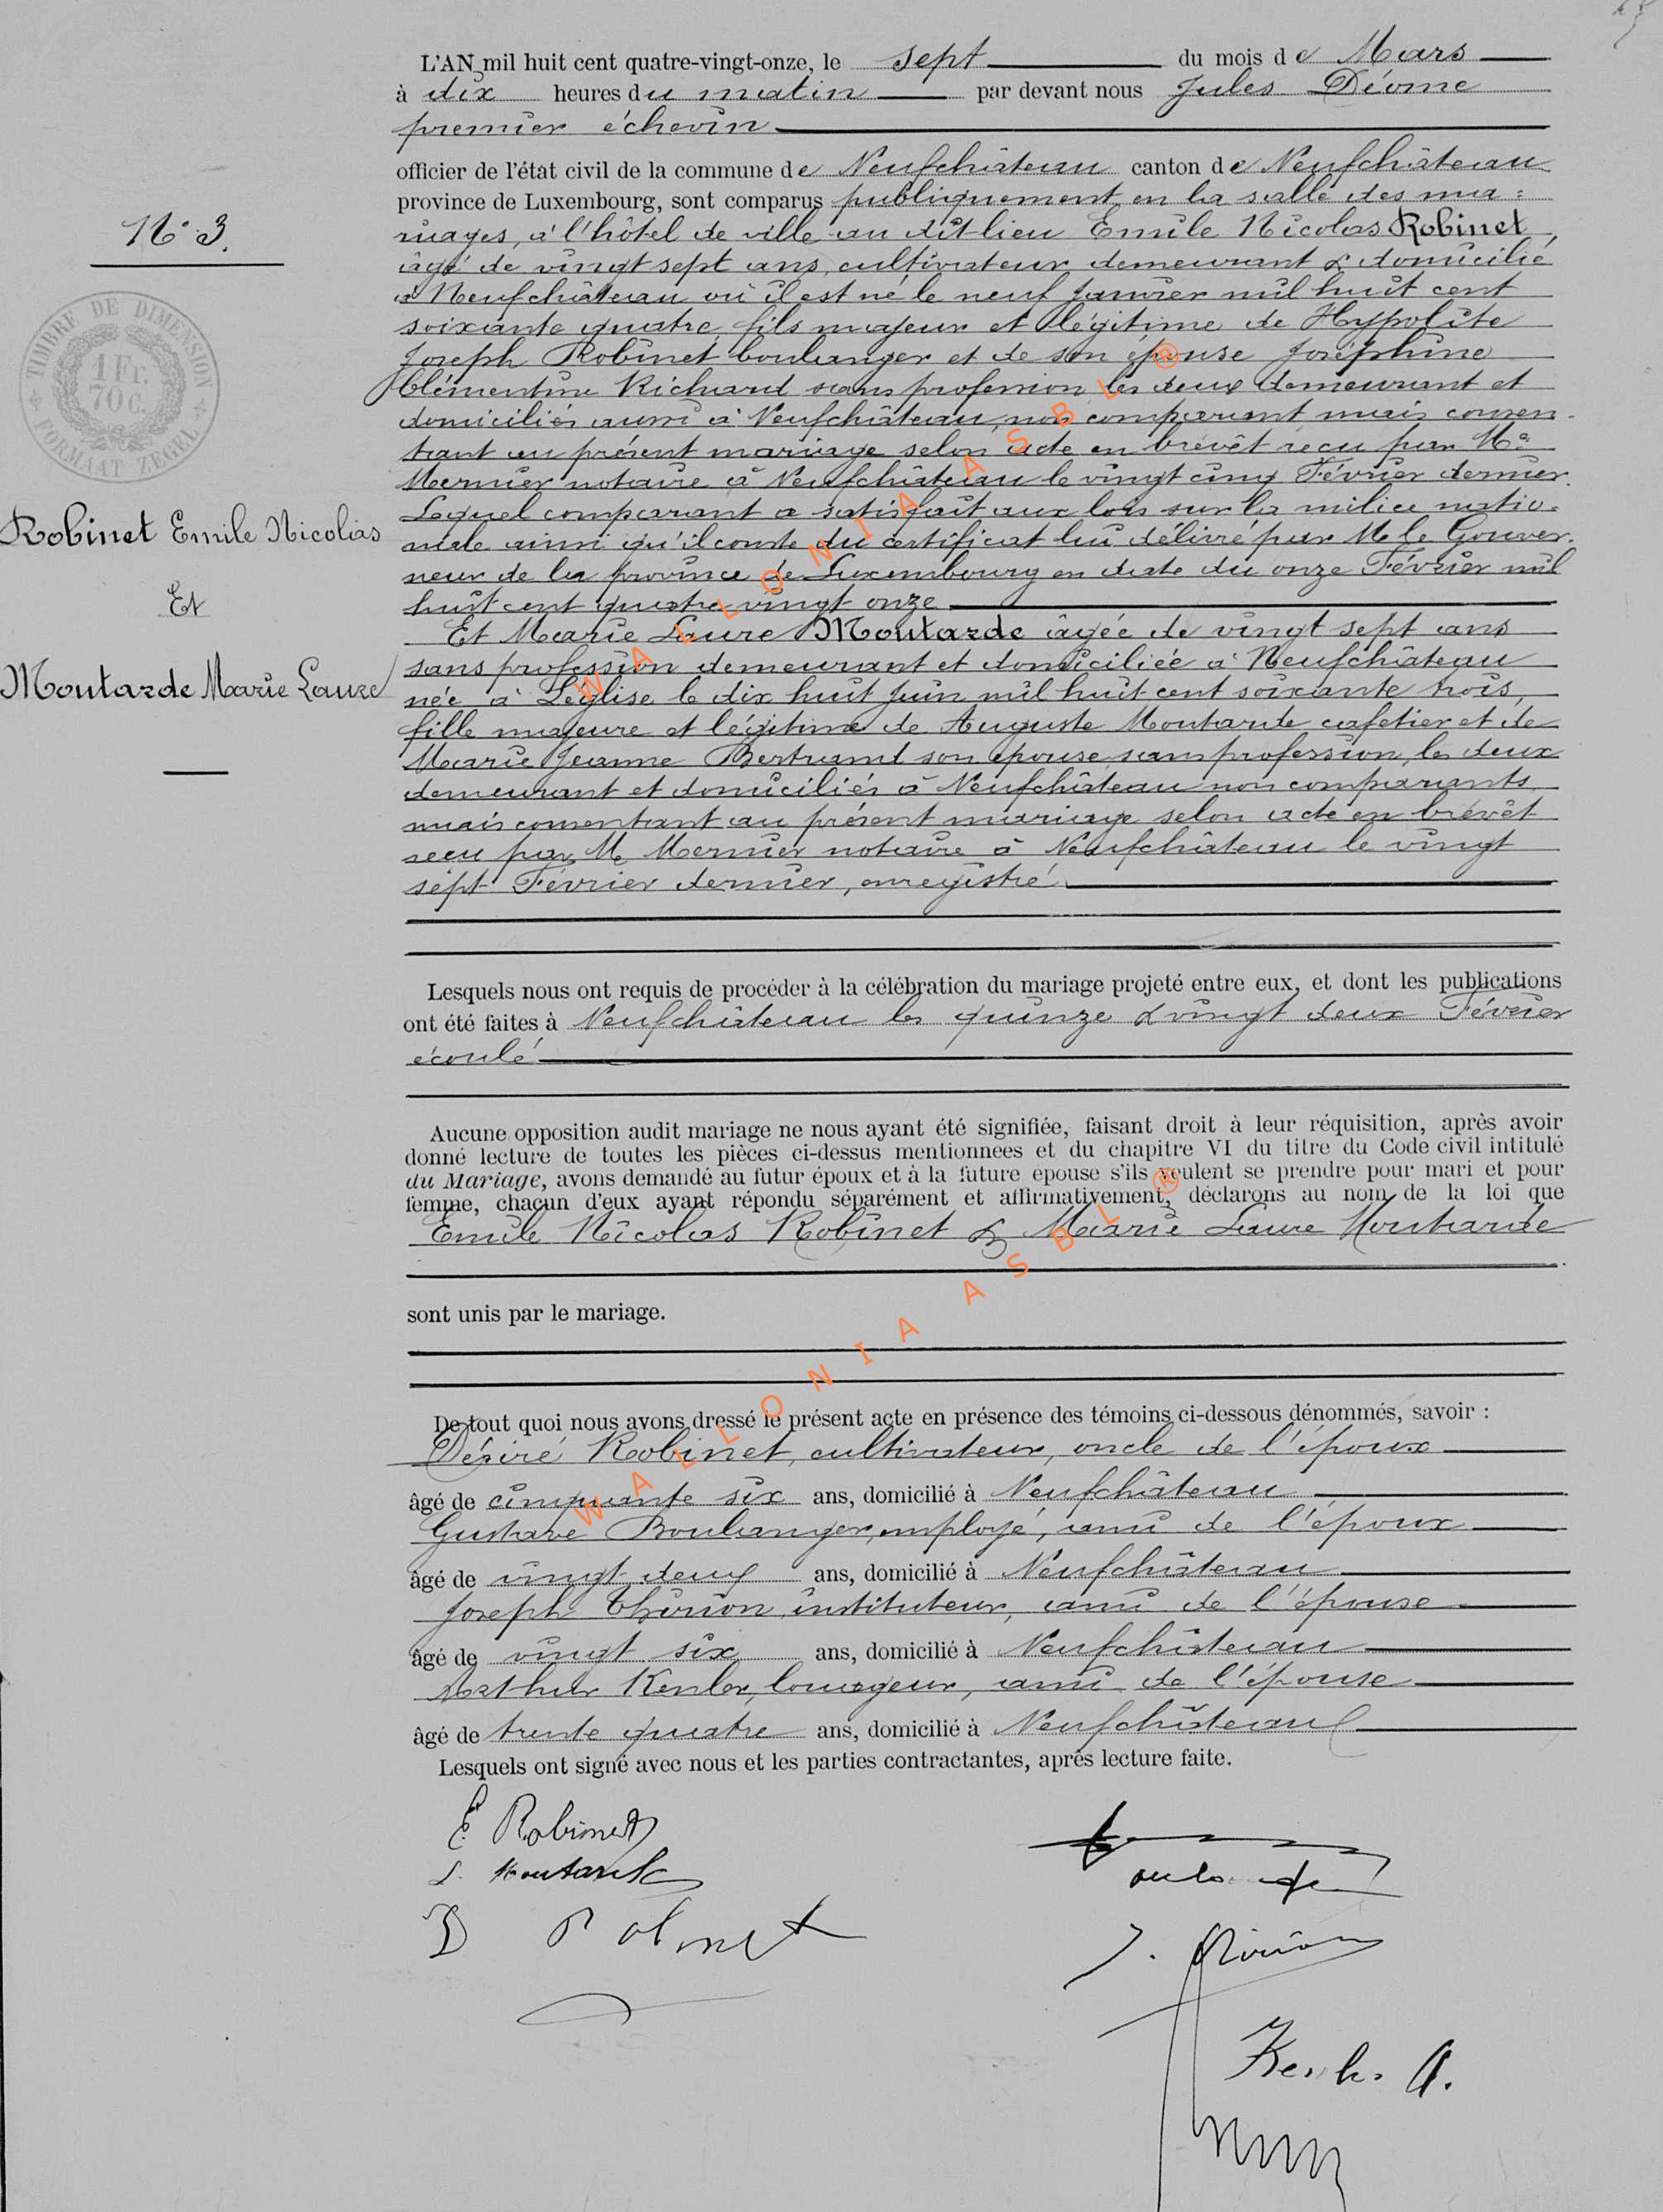 L'AN mil huit cent quatre-vingt-onze, le sept du mois de Mars
à dix heures du matin par devant nous Jules Déome
premier échevin
officier de l'état civil de la commune de Neufchâteau canton de Neufchâteau
province de Luxembourg, sont comparus publiquement en la salle des ma=
riages, à l'hôtel de ville au dit lieu Emile Nicolas Robinet,
âgé de vingt sept ans, cultivateur demeurant & domicilié
à Neufchâteau où il est né le neuf Janvier mil huit cent
soixante quatre, fils majeur et légitime de Hyppolite
Joseph Robinet boulanger et de son épouse Joséphine
Clémentine Richard sans profession les deux demeurant et
domiciliés aussi à Neufchâteau, non comparant mais consen-
tant au présent mariage selon acte en brevêt reçu par Me
Mernier notaire à Neufchâteau le vingt cinq Février dernier.
Lequel comparant a satisfait aux lois sur la milice natio-
nale ainsi qu'il conste du certificat lui délivré par M le Gouver-
neur de la province de Luxembourg en date du onze Février mil
huit cent quatre vingt onze
Et Marie Laure Moutarde âgée de vingt sept ans
sans profession demeurant et domiciliée à Neufchâteau
née à Léglise le dix huit Juin mil huit cent soixante trois,
fille majeure et légitime de Auguste Moutarde cafetier et de
Marie Jeanne Bertrand son épouse sans profession, les deux
demeurant et domiciliés à Neufchâteau non comparants
mais consentant au présent mariage selon acte en brevêt
reçu par Me Mernier notaire à Neufchâteau le vingt
sept Février dernier, enregistré.
N° 3.
TIMBRE DE DIMENSION
1 Fr.
70 c.
FORMAAT ZEGEL
Robinet Emile Nicolas
Et
Moutarde Marie Laure
Lesquels nous ont requis de procéder à la célébration du mariage projeté entre eux, et dont les publications
ont été faites à Neufchâteau les quinze & vingt deux Février
écoulé
Aucune opposition audit mariage ne nous ayant été signifiée, faisant droit à leur réquisition, après avoir
donné lecture de toutes les pièces ci-dessus mentionnees et du chapitre VI du titre du Code civil intitulé
du Mariage, avons demandé au futur époux et à la future epouse s'ils veulent se prendre pour mari et pour
femme, chacun d'eux ayant répondu séparément et affirmativement, déclarons au nom de la loi que
Emile Nicolas Robinet & Marie Laure Moutarde
sont unis par le mariage.
De tout quoi nous avons dressé le présent acte en présence des témoins ci-dessous dénommés, savoir :
Désiré Robinet, cultivateur, oncle de l'époux
âgé de cinquante six ans, domicilié à Neufchâteau
Gustave Boulanger, employé, ami de l'époux
âgé de vingt deux ans, domicilié à Neufchâteau
Joseph Thirion, instituteur, ami de l'épouse
âgé de vingt six ans, domicilié à Neufchâteau
Arthur Kenler, louageur, ami de l'épouse
âgé de trente quatre ans, domicilié à Neufchâteau
Lesquels ont signé avec nous et les parties contractantes, après lecture faite.
E Robinet
L. Moutarde
D Robinet
WALLONIA ASBL ®
WALLONIA ASBL ®